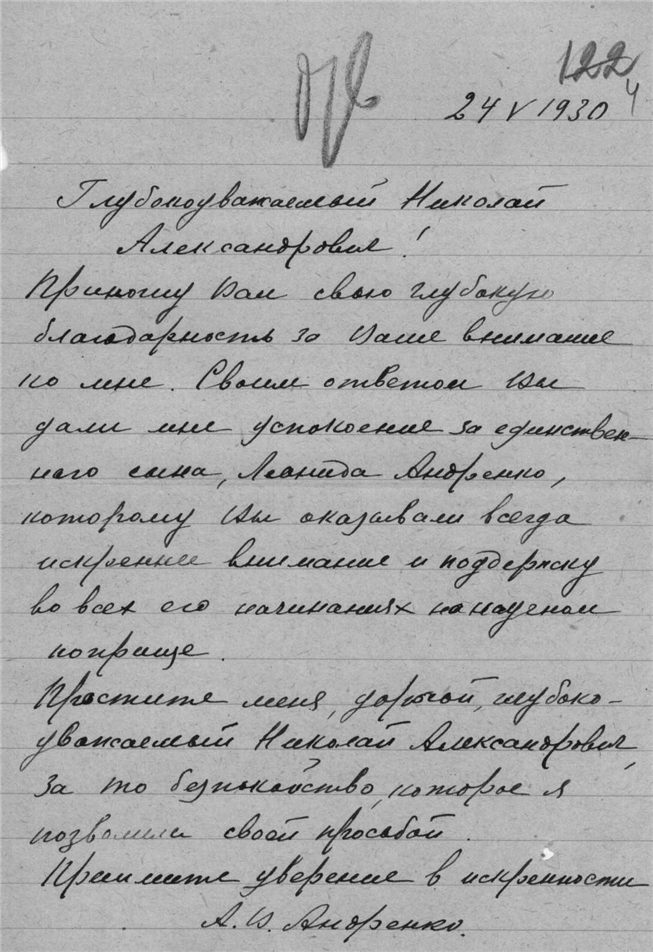 122
4
24 V 1930
Глубокоуважаемый Николай
Александрович!
Приношу Вам свою глубокую
благодарность за Ваше внимание
ко мне. Своим ответом Вы
дали мне успокоение за единствен-
ного сына, Леонида Андренко,
которому Вы оказывали всегда
искреннее внимание и поддержку
во всех его начинаниях на научном
поприще.
Простите меня, дорогой, глубоко-
уважаемый Николай Александрович,
за то безпокойство, которое я
позволила своей прособой.
Примите уверение в искренности
А. В. Андренко.